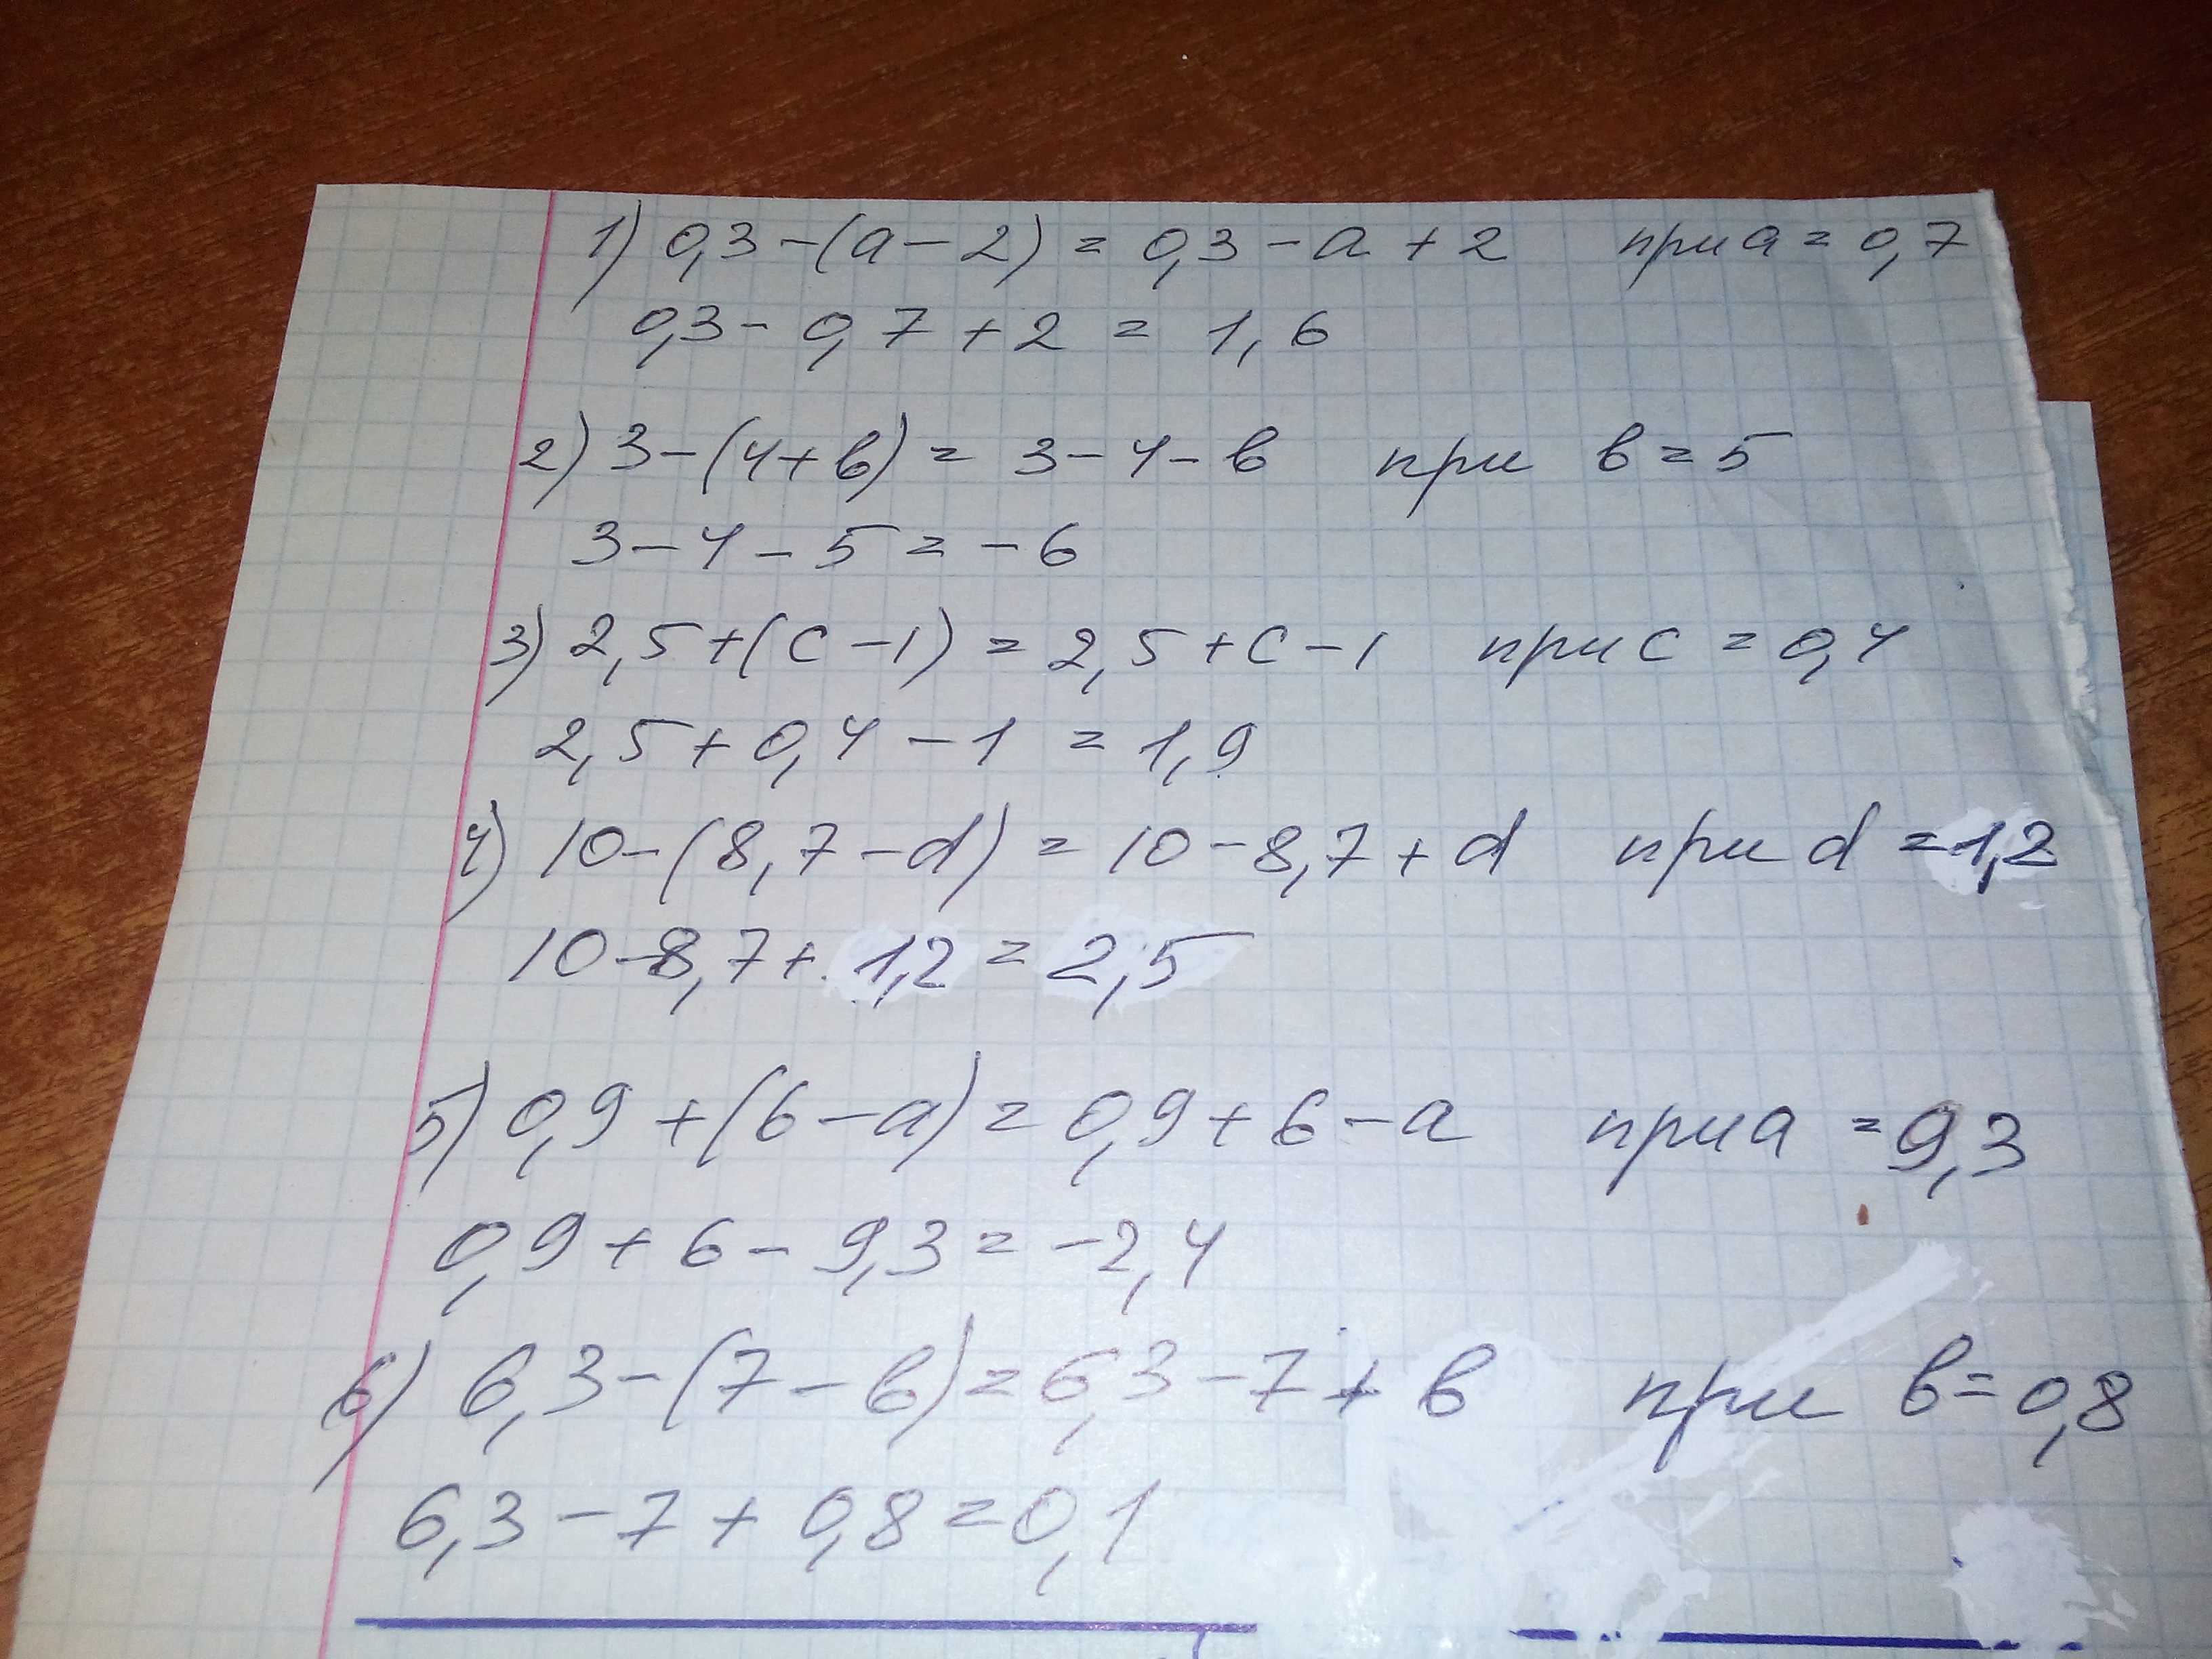 1) 0,3-(a-2)=0,3-a+2 при a=0,7
0,3-0,7+2=1,6
2) 3-(4+в)=3-4-в при в=5
3-4-5=-6
3) 2,5+(с-1)=2,5+с-1 при с=0,4
2,5+0,4-1=1,9
4) 10-(8,7-d)=10-8,7+d при d=1,2
10-8,7+1,2=2,5
5) 0,9+(6-a)=0,9+6-a при a=9,3
0,9+6-9,3=-2,4
6) 6,3-(7-в)=6,3-7+в при в=0,8
6,3-7+0,8=0,1